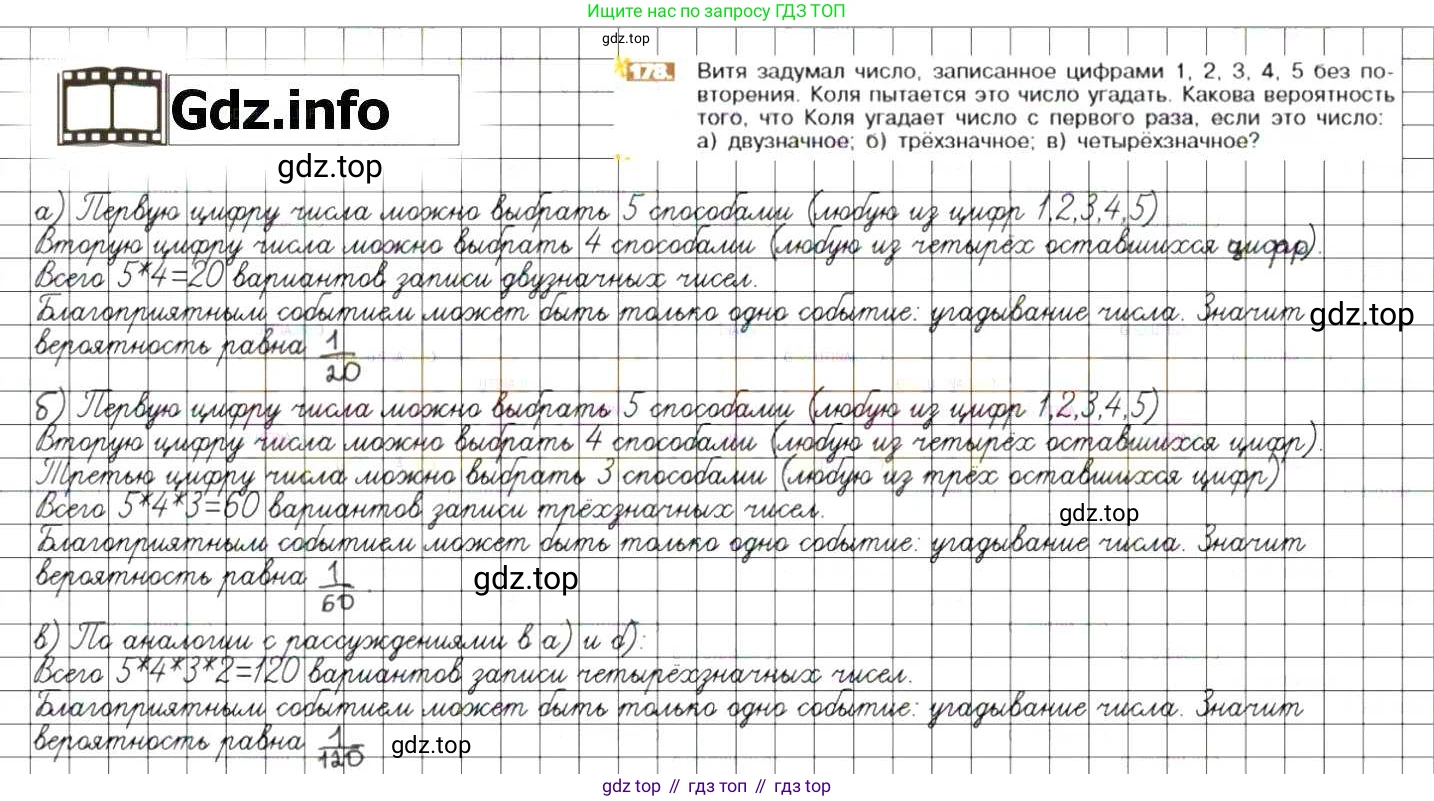 Ищите нас по запросу ГДЗ ТОП
gdz.top
Gdz.info
gdz.top
178. Витя задумал число, записанное цифрами 1, 2, 3, 4, 5 без по-
вторения. Коля пытается это число угадать. Какова вероятность
того, что Коля угадает число с первого раза, если это число:
а) двузначное; б) трёхзначное; в) четырёхзначное?
а) Первую цифру числа можно выбрать 5 способами (любую из цифр 1,2,3,4,5)
Вторую цифру числа можно выбрать 4 способами (любую из четырёх оставшихся цифр).
Всего 5*4=20 вариантов записи двузначных чисел.
Благоприятным событием может быть только одно событие: угадывание числа. Значит gdz.top
вероятность равна 1/20
б) Первую цифру числа можно выбрать 5 способами (любую из цифр 1,2,3,4,5)
Вторую цифру числа можно выбрать 4 способами (любую из четырёх оставшихся цифр).
Третью цифру числа можно выбрать 3 способами (любую из трёх оставшихся цифр)
Всего 5*4*3=60 вариантов записи трёхзначных чисел.
gdz.top
Благоприятным событием может быть только одно событие: угадывание числа. Значит
вероятность равна 1/60.
gdz.top
в) По аналогии с рассуждениями в а) и б):
Всего 5*4*3*2=120 вариантов записи четырёхзначных чисел.
Благоприятным событием может быть только одно событие: угадывание числа. Значит
вероятность равна 1/120
gdz.top
gdz top // гдз топ // gdz top